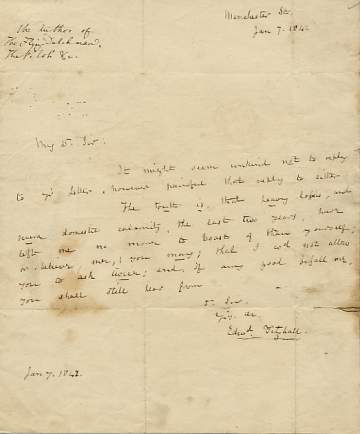 The Author of
The Flying Dutchman,
The Pilot &c.
Manchester St.
Jan 7. 1842
My Dr Sir.
It might seem unkind not to reply
to yr letter, however painful that reply to either
The truth is, that heavy losses, and
severe domestic calamity, the last two years, have
left me no more to boast of than yourself;
or believe, me, you may; that I wd not allow
you to ask twice; and, if any good befall me,
you shall still hear from
Dr Sir
Yrs
Edwd. Fitzball.
Jan 7. 1842.